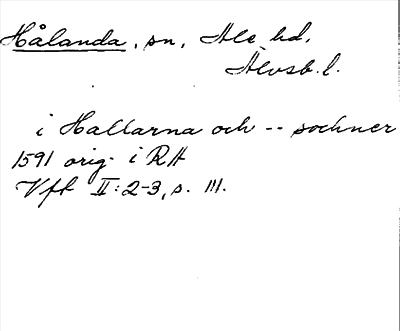 Hålanda, sn, Ale hd,
Älvsb. l.
i Hallarna och -- sochner
1591 orig. i RA
Vft II:2-3, s. 111.